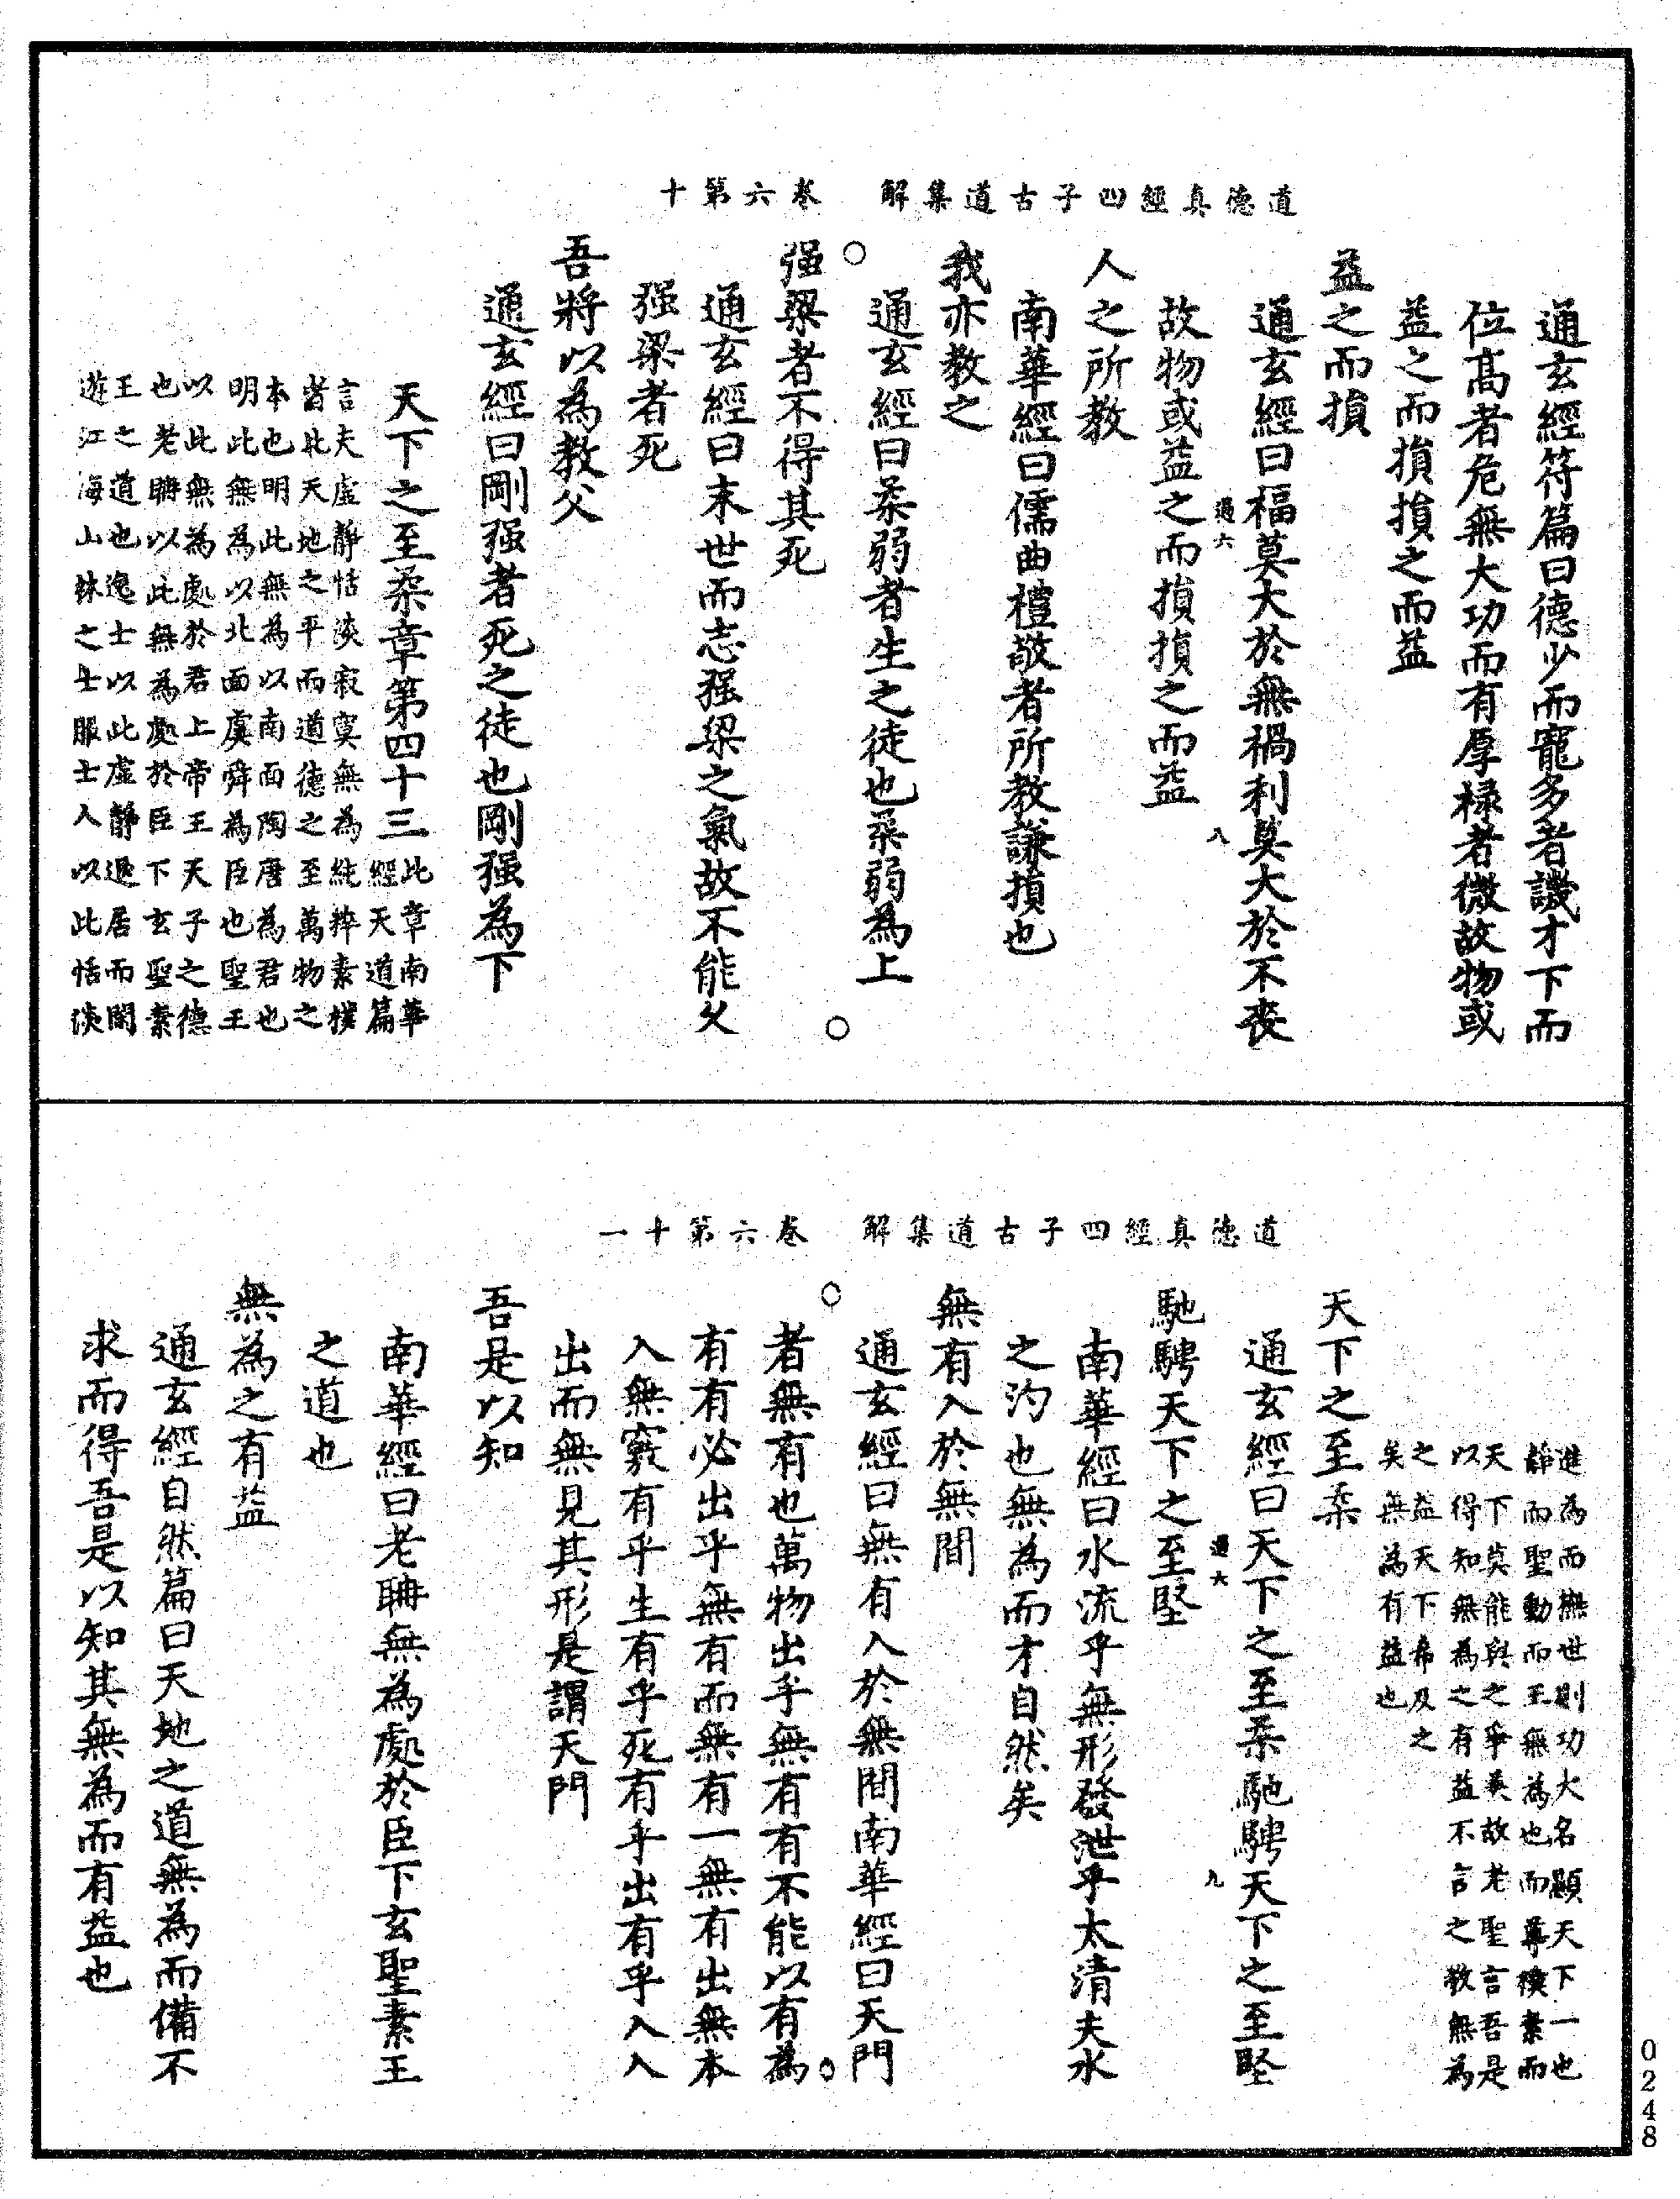 道德真經四子古道集解　卷六第十
通玄經符篇曰德少而寵多者譏才下而
位髙者危無大功而有厚禄者微故物或
益之而損損之而益
益之而損
通玄經曰福莫大於無禍利莫大於不喪
過六　八
故物或益之而損損之而益
人之所教
南華經曰儒曲禮敬者所教謙損也
我亦教之
通玄經曰柔弱者生之徒也柔弱為上
○　○
强梁者不得其死
通玄經曰末世而志强梁之氣故不能久
强梁者死
吾將以為教父
通玄經曰剛强者死之徒也剛强為下
天下之至柔章第四十三
此章南華
經天道篇
言夫虛靜恬淡寂寞無為純粹素樸
者此天地之平而道德之至萬物之
本也明此無為以南面陶唐為君也
明此無為以北面虞舜為臣也聖王
以此無為處於君上帝王天子之德
也老聃以此無為處於臣下玄聖素
王之道也逸士以此虛靜退居而閑
遊江海山林之士服士人以此恬淡
道德真經四子古道集解　卷六第十一
進為而撫世則功大名顯天下一也
靜而聖動而王無為也而尊樸素而
天下莫能與之爭美故老聖言吾是
以得知無為之有益不言之教無為
之益天下希及之
矣無為有益也
天下之至柔
通玄經曰天下之至柔馳騁天下之至堅
過六　九
馳騁天下之至堅
南華經曰水流乎無形發泄乎太清夫水
之汋也無為而才自然矣
無有入於無間
通玄經曰無有入於無間南華經曰天門
○　○
者無有也萬物出乎無有有不能以有為
有有必出乎無有而無有一無有出無本
入無竅有乎生有乎死有乎出有乎入入
出而無見其形是謂天門
吾是以知
南華經曰老聃無為處於臣下玄聖素王
之道也
無為之有益
通玄經自然篇曰天地之道無為而備不
求而得吾是以知其無為而有益也
0248